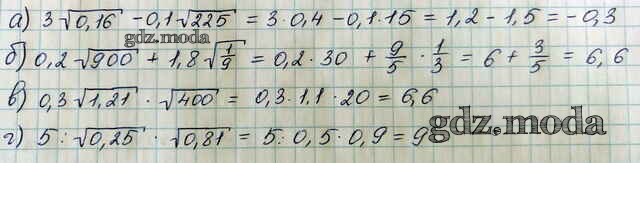 а) 3√0,16 - 0,1√225 = 3·0,4 - 0,1·15 = 1,2 - 1,5 = -0,3
gdz.moda
б) 0,2√900 + 1,8√1/9 = 0,2·30 + 9/5 · 1/3 = 6 + 3/5 = 6,6
в) 0,3√1,21 · √400 = 0,3·1,1·20 = 6,6
gdz.moda
г) 5:√0,25 · √0,81 = 5:0,5·0,9 = 9